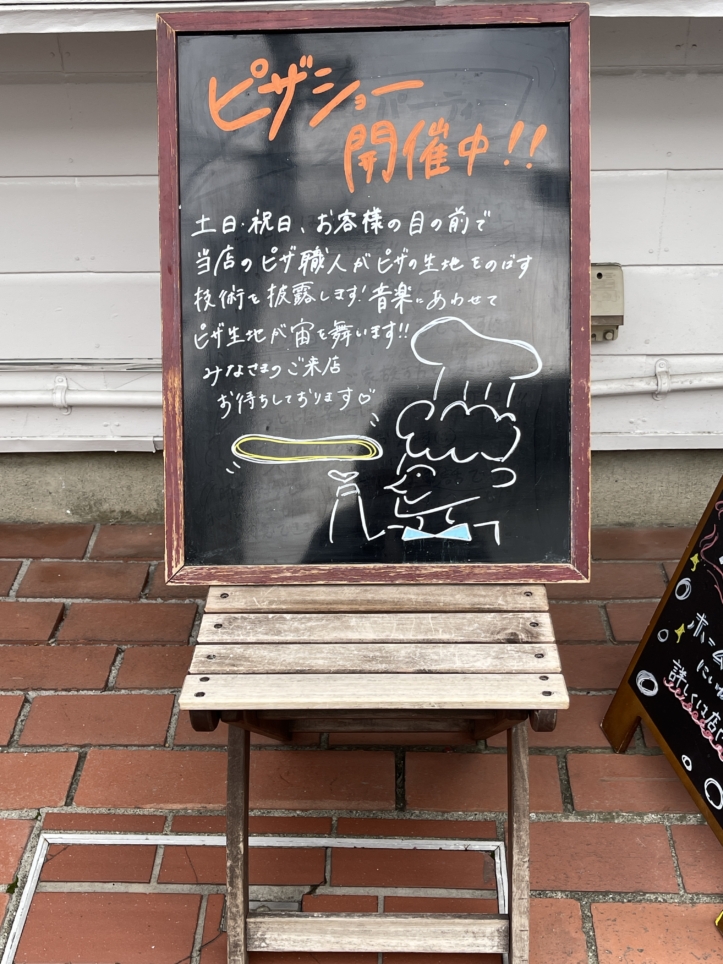 ピザショー
開催中!!
土日・祝日、お客様の目の前で
当店のピザ職人がピザの生地をのばす
技術を披露します!音楽にあわせて
ピザ生地が宙を舞います!!
みなさまのご来店
お待ちしております♡
赤=
にし
詳しくは店